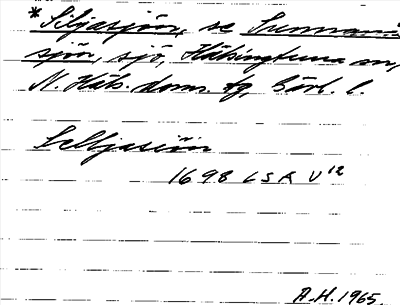 *Siljasjön, se Sunnanå-
sjön, sjö, Hälsingtuna sn,
N. Häls. doms. tg, Gävl. l.
Selljasiön
1698 LSA U12
A.H. 1965.